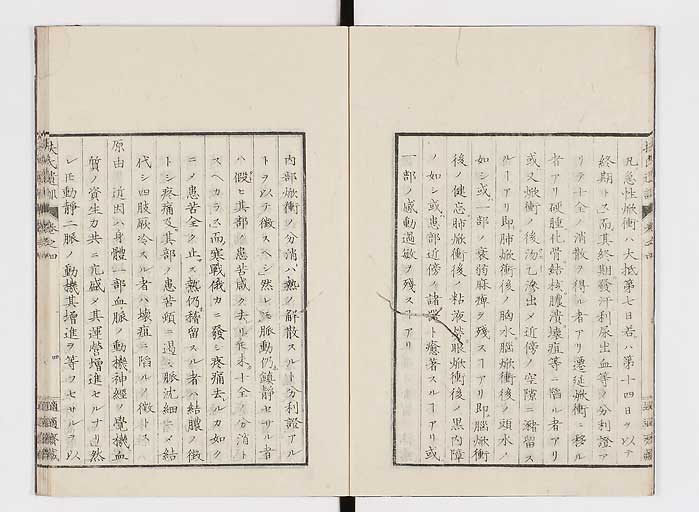 凡急性焮衝ハ大抵第七日若クハ第十四日ヲ以テ
終期トス而其終期發汗利尿出血等ノ分利證ア
リテ十全ノ消散ヲ得ル者アリ遷延焮衝ニ移ル
者アリ硬腫化骨結核膿潰壊疽等ニ陷ル者アリ
或又焮衝ノ後汤乙滲出メ近傍ノ空隙ニ瀦留ス
ルヿアリ即肺焮衝後ノ胸水腦焮衝後ノ頭水ノ
如シ或ハ一部ノ衰弱麻痺ヲ殘スヿアリ即腦焮衝
後ノ健忘肺焮衝後ノ粘液眼焮衝後ノ黒内障
ノ如シ或ハ患部近傍ノ諸器ト癒著スルヿアリ或
一部ノ感動過敏ヲ殘スヿアリ
扶氏遺訓
卷之四
内部焮衝ノ分消ハ熱ノ解散スルト分利證アル
トヲ以テ徴スヘシ然レ𪜈脈動仍鎮静セサル者
ハ假ヒ其部ノ患苦減ク去リ乖來十全ノ分消ト
スヘカラス而寒戰俄カニ發シ疼痛去ルカ如ク
ニメ患苦全ク止ス熱仍稽留スル者ハ結膿ノ徴
トシ疼痛及其部ノ患苦頓ニ退ミ脈沈細ニメ結
代シ四肢厥冷スル者ハ壊疽ニ陷ルノ徴トス
原由 近因ハ身體一部血脈ノ動機神經ノ覺機血
質ノ資生力共ニ亢盛メ其運營増進セルナリ然
レ𪜈動靜二脈ノ動機其増進ヲ等フセサルヲ以
扶氏遺訓
卷之四
四
適適齋藏